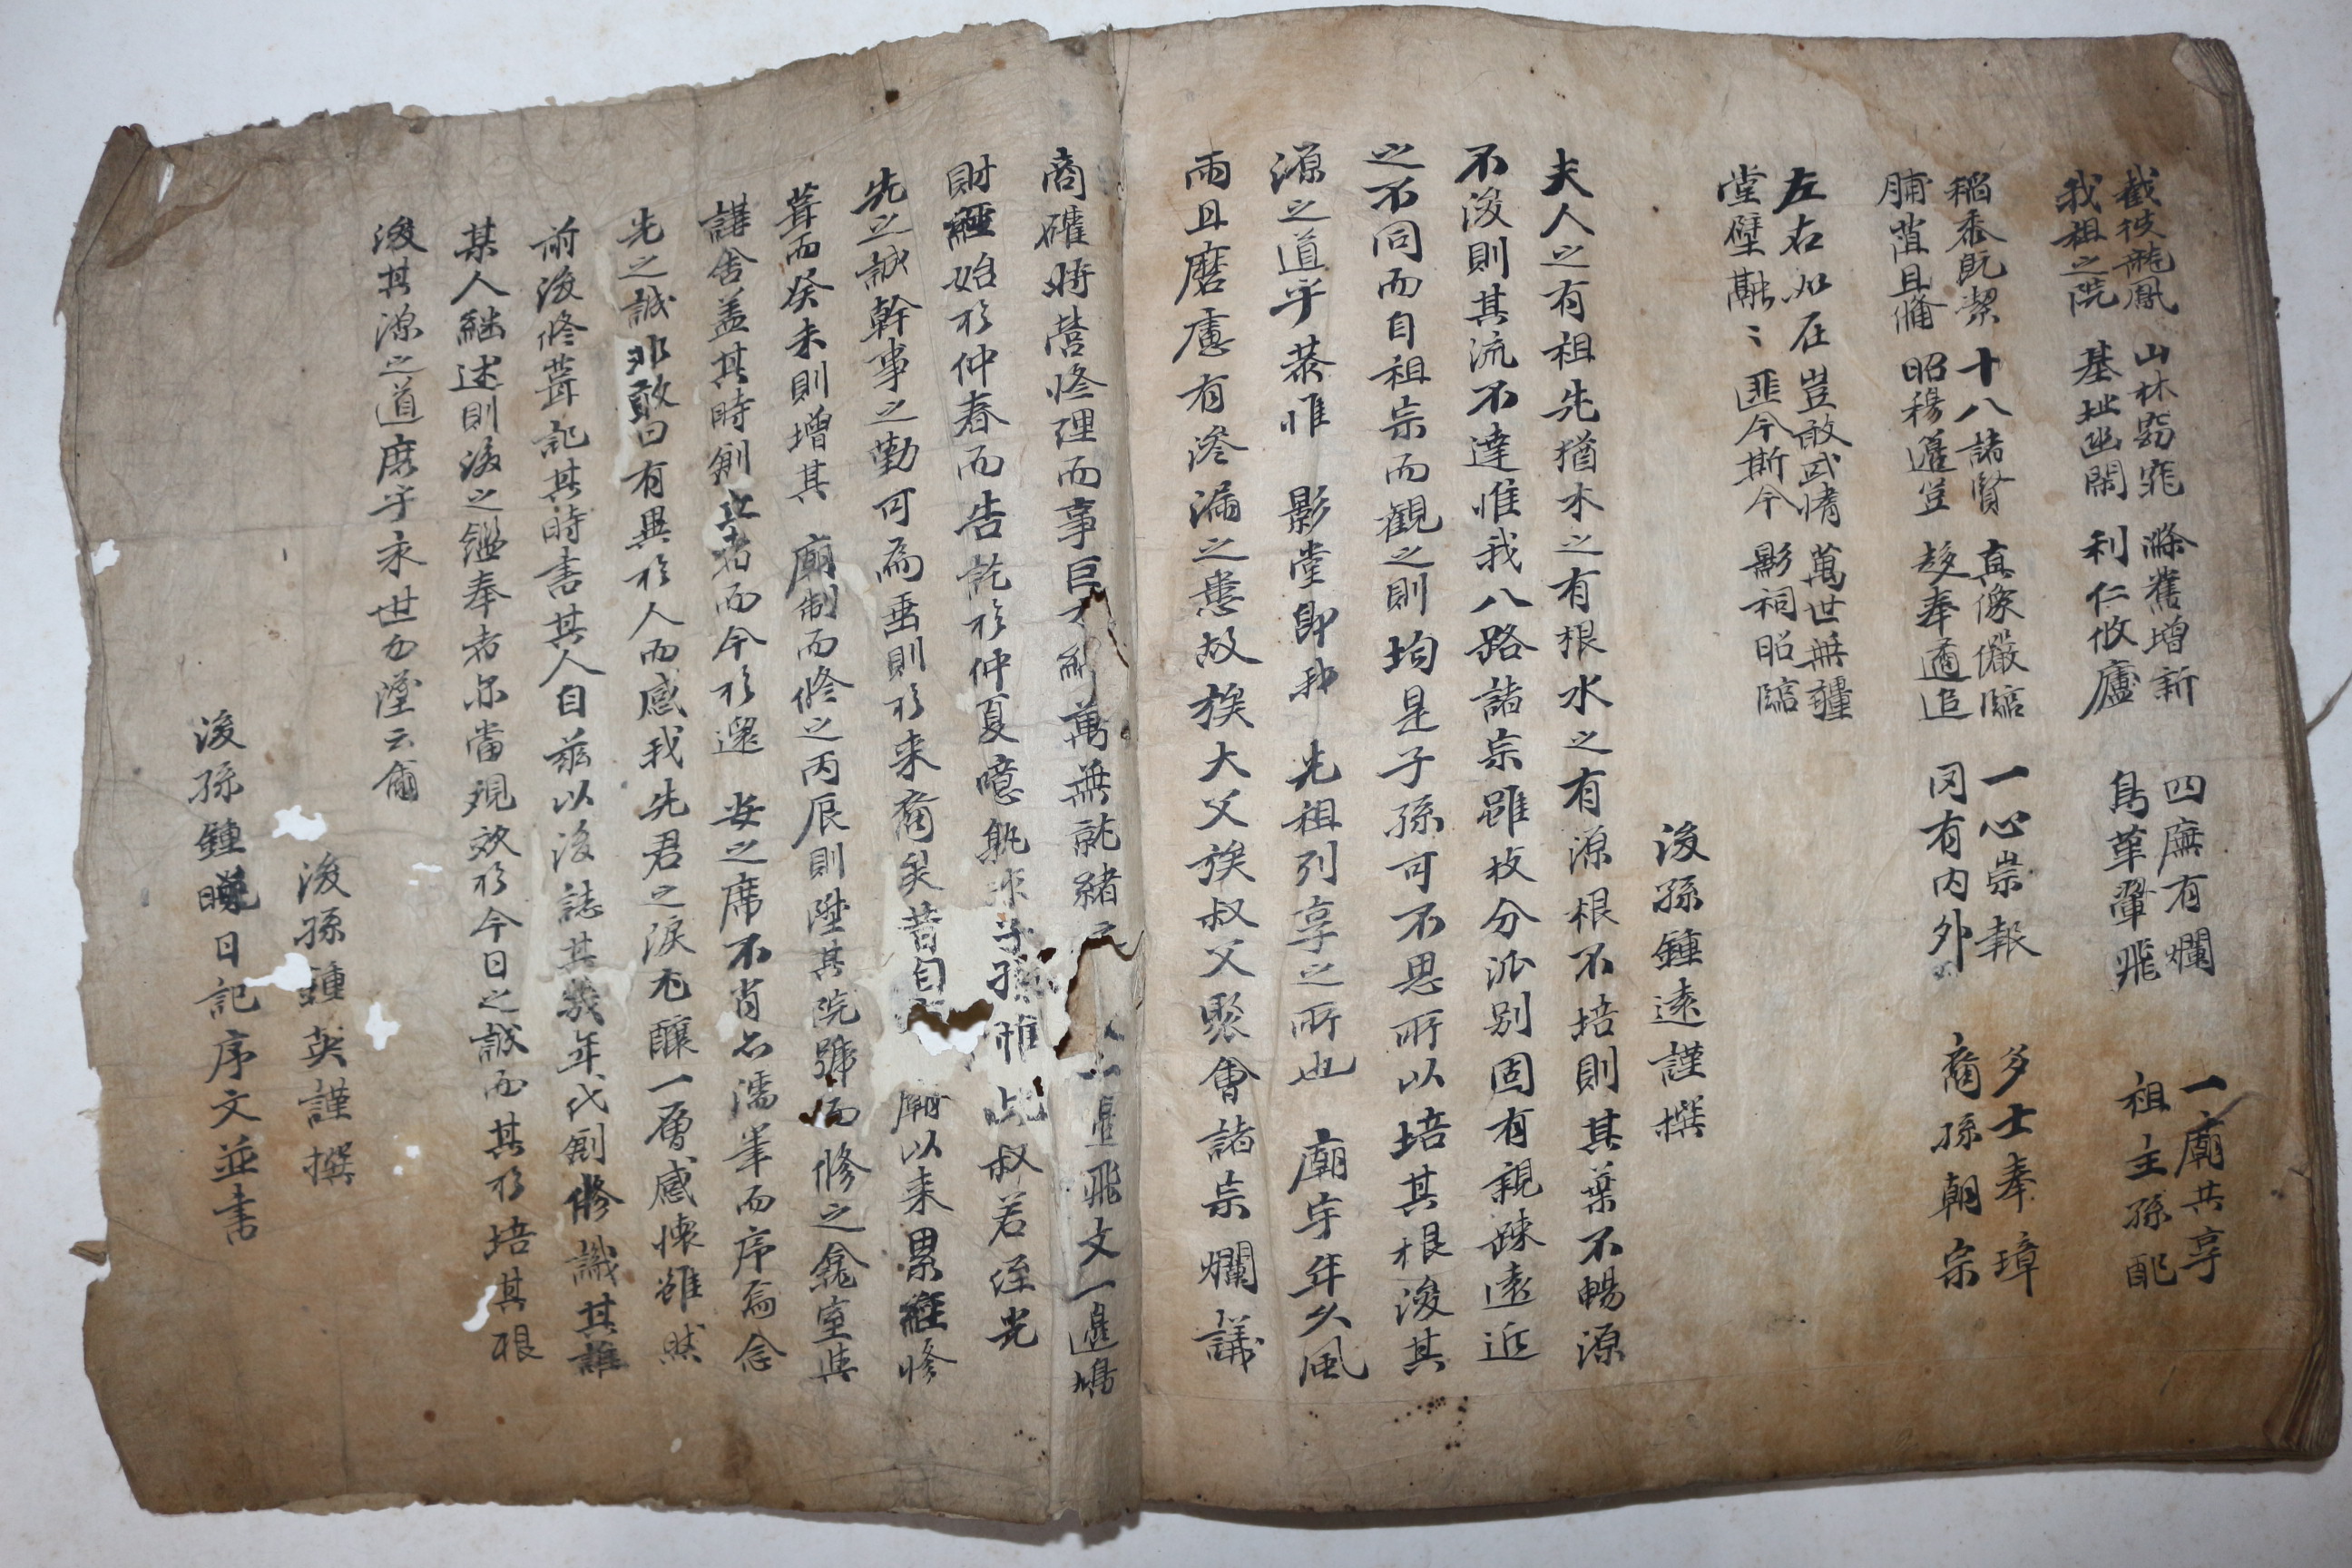 截彼龍鳳 山林窈窕 滌舊增新 四廡有爛 一廟共享
我祖之院 基址幽閑 利仁攸廬 鳥革翬飛 祖主孫配
稻黍旣潔 十八諸賢 眞像儼臨 一心崇報 多士奉璋
脯菹且脩 昭穆籩豆 趍奉遹追 罔有內外 裔孫朝宗
左右如在 豈敢或惰 萬世無疆
堂壁融〻 匪今斯今 影祠昭臨
後孫鍾遠謹撰
夫人之有祖先猶木之有根水之有源根不培則其葉不暢源
不浚則其流不達惟我八路諸宗雖枝分派別固有親踈遠近
之不同而自祖宗而觀之則均是子孫可不思所以培其根浚其
源之道乎恭惟 影堂卽我 先祖列享之所也 廟宇年久風
雨且磨慮有滲漏之患故族大父族叔父聚會諸宗爛議
商確時營修理而事巨 萬無就緖 飛文一邊鳩
財經始於仲春而告訖於仲夏噫孰 子孫惟此叔若侄先
先之誠幹事之勤可爲垂則於來裔矣昔自 廟以來累經修
葺而癸未則增其 廟制而修之丙辰則陞其院號而修之龕室與
講舍盖其時刱立者而今於還 安之席不肖名濡筆而序焉念
先之誠非敢曰有異於人而感我先君之淚尤釀一層感懷雖然
前後修葺記其時書其人自玆以後誌其幾年代刱修識其誰
某人繼述則後之繼奉者亦當現效於今日之誠而其於培其根
浚其源之道庶乎永世勿墜云爾
後孫鍾英謹撰
後孫鍾 日記序文並書